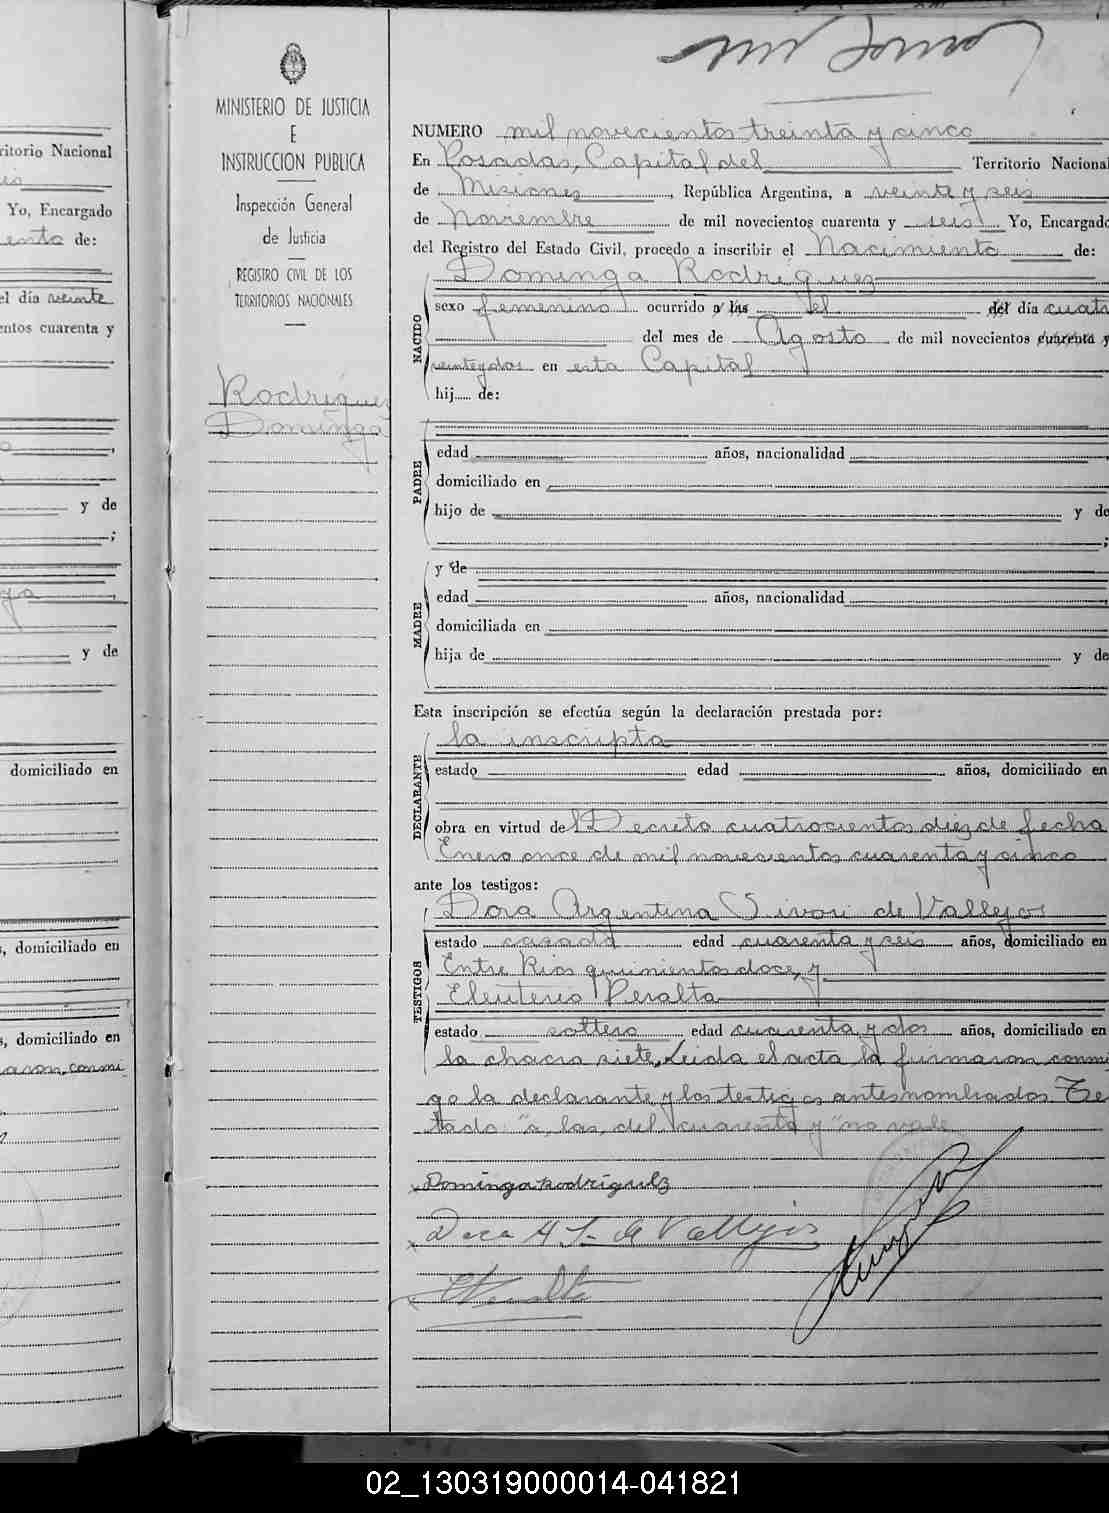 MINISTERIO DE JUSTICIA
E
INSTRUCCION PUBLICA
Inspección General
de Justicia
REGISTRO CIVIL DE LOS
TERRITORIOS NACIONALES
Rodríguez
Dominga
ritorio Nacional
Yo, Encargado
ento de:
el día veinte
entos cuarenta y
y de
;
y de
domiciliado en
s, domiciliado en
s, domiciliado en
aron conmi
NUMERO mil novecientos treinta y cinco
En Posadas, Capital del Territorio Nacional
de Misiones, República Argentina, a veinte y seis
de Noviembre de mil novecientos cuarenta y seis Yo, Encargado
del Registro del Estado Civil, procedo a inscribir el Nacimiento de:
NACIDO
Dominga Rodríguez
sexo femenino ocurrido a las el del día cuatr
del mes de Agosto de mil novecientos cuarenta y
veinteydos en esta Capital
hij de:
PADRE
edad años, nacionalidad
domiciliado en
hijo de y de
;
MADRE
y de
edad años, nacionalidad
domiciliada en
hija de y de
Esta inscripción se efectúa según la declaración prestada por:
DECLARANTE
la inscripta
estado edad años, domiciliado en
obra en virtud del Decreto cuatrocientos diez de fecha
Enero once de mil novecientos cuarenta y cinco
ante los testigos:
TESTIGOS
Dora Argentina Sivori de Vallejos
estado casada edad cuarenta y seis años, domiciliado en
Entre Rios quinientos doce, y
Eleuterio Peralta
estado soltero edad cuarenta y dos años, domiciliado en
la chacra siete, Leida el acta la firmaron conmi
go la declarante y los testigos antes nombrados Te
tado: "a, las, del cuarenta y" no vale
Dominga Rodriguez
Dora A S. de Vallejos
EPeralta
02_130319000014-041821